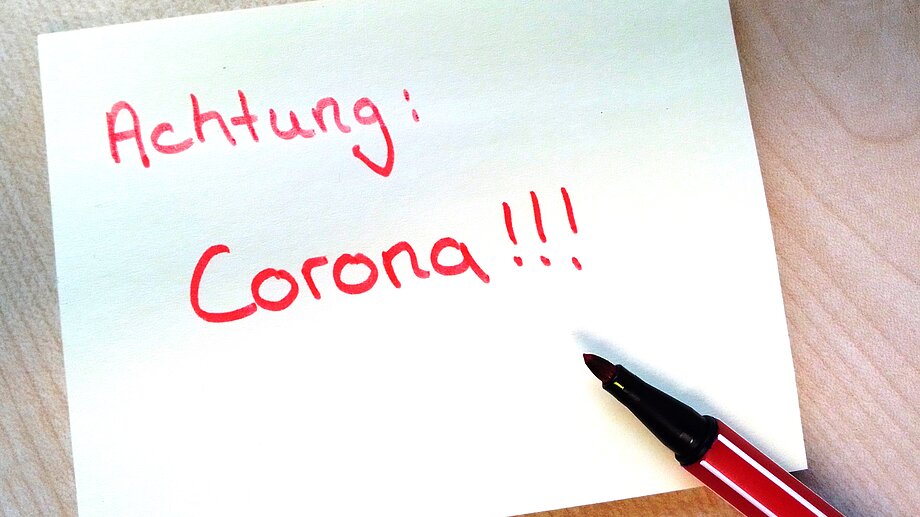 Achtung:
Corona!!!